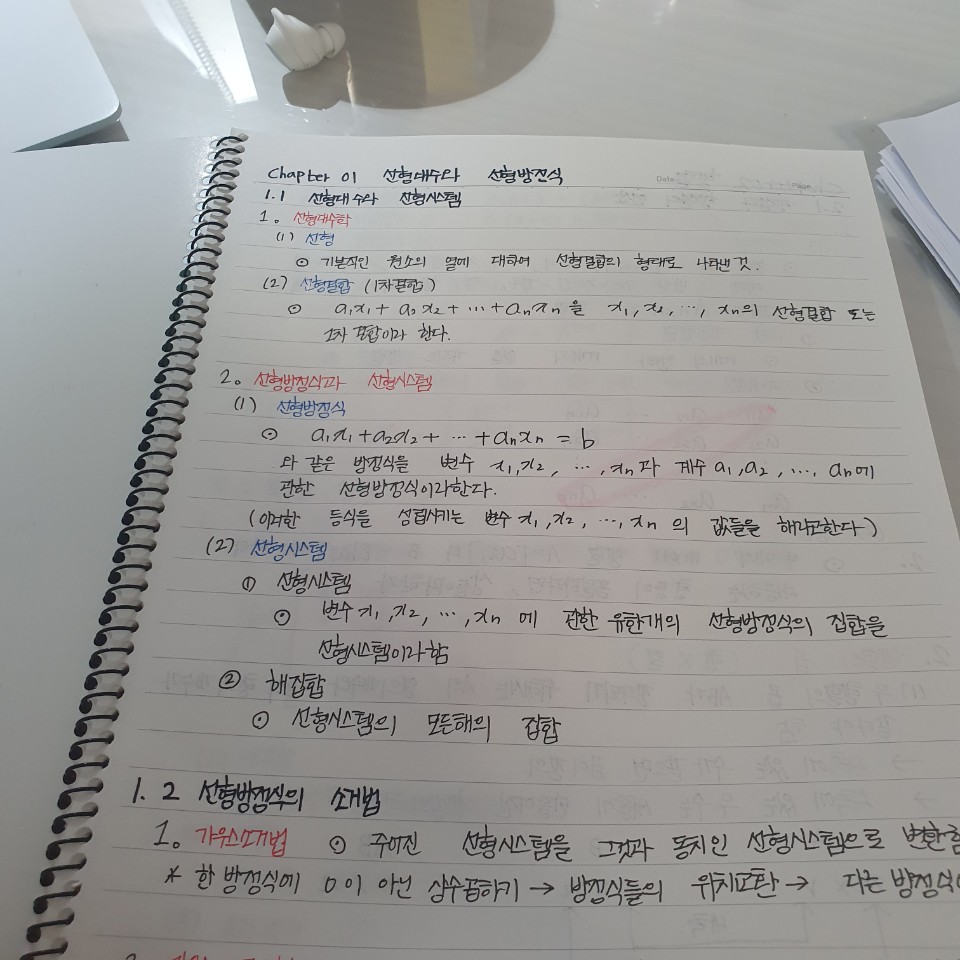 Chapter 01 선형대수와 선형방정식
Date Page
1.1 선형대수와 선형시스템
1. 선형대수학
(1) 선형
⊙ 기본적인 원소의 열에 대하여 선형결합의 형태로 나타낸 것.
(2) 선형결합 (1차결합)
⊙ a₁x₁ + a₂x₂ + ⋯ + aₙxₙ을 x₁, x₂, ⋯, xₙ의 선형결합 또는
1차 결합이라 한다.
2. 선형방정식과 선형시스템
(1) 선형방정식
⊙ a₁x₁ + a₂x₂ + ⋯ + aₙxₙ = b
와 같은 방정식을 변수 x₁, x₂, ⋯, xₙ과 계수 a₁, a₂, ⋯, aₙ에
관한 선형방정식이라한다.
(이러한 등식을 성립시키는 변수 x₁, x₂, ⋯, xₙ의 값들을 해라고한다)
(2) 선형시스템
① 선형시스템
⊙ 변수 x₁, x₂, ⋯, xₙ에 관한 유한개의 선형방정식의 집합을
선형시스템이라함
② 해집합
⊙ 선형시스템의 모든해의 집합
1.2 선형방정식의 소거법
1. 가우스소거법 ⊙ 주어진 선형시스템을 그것과 동치인 선형시스템으로 변환
* 한 방정식에 0이 아닌 상수곱하기 → 방정식들의 위치교환 → 다른 방정식